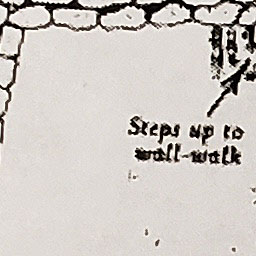 Steps up to
wall-walk